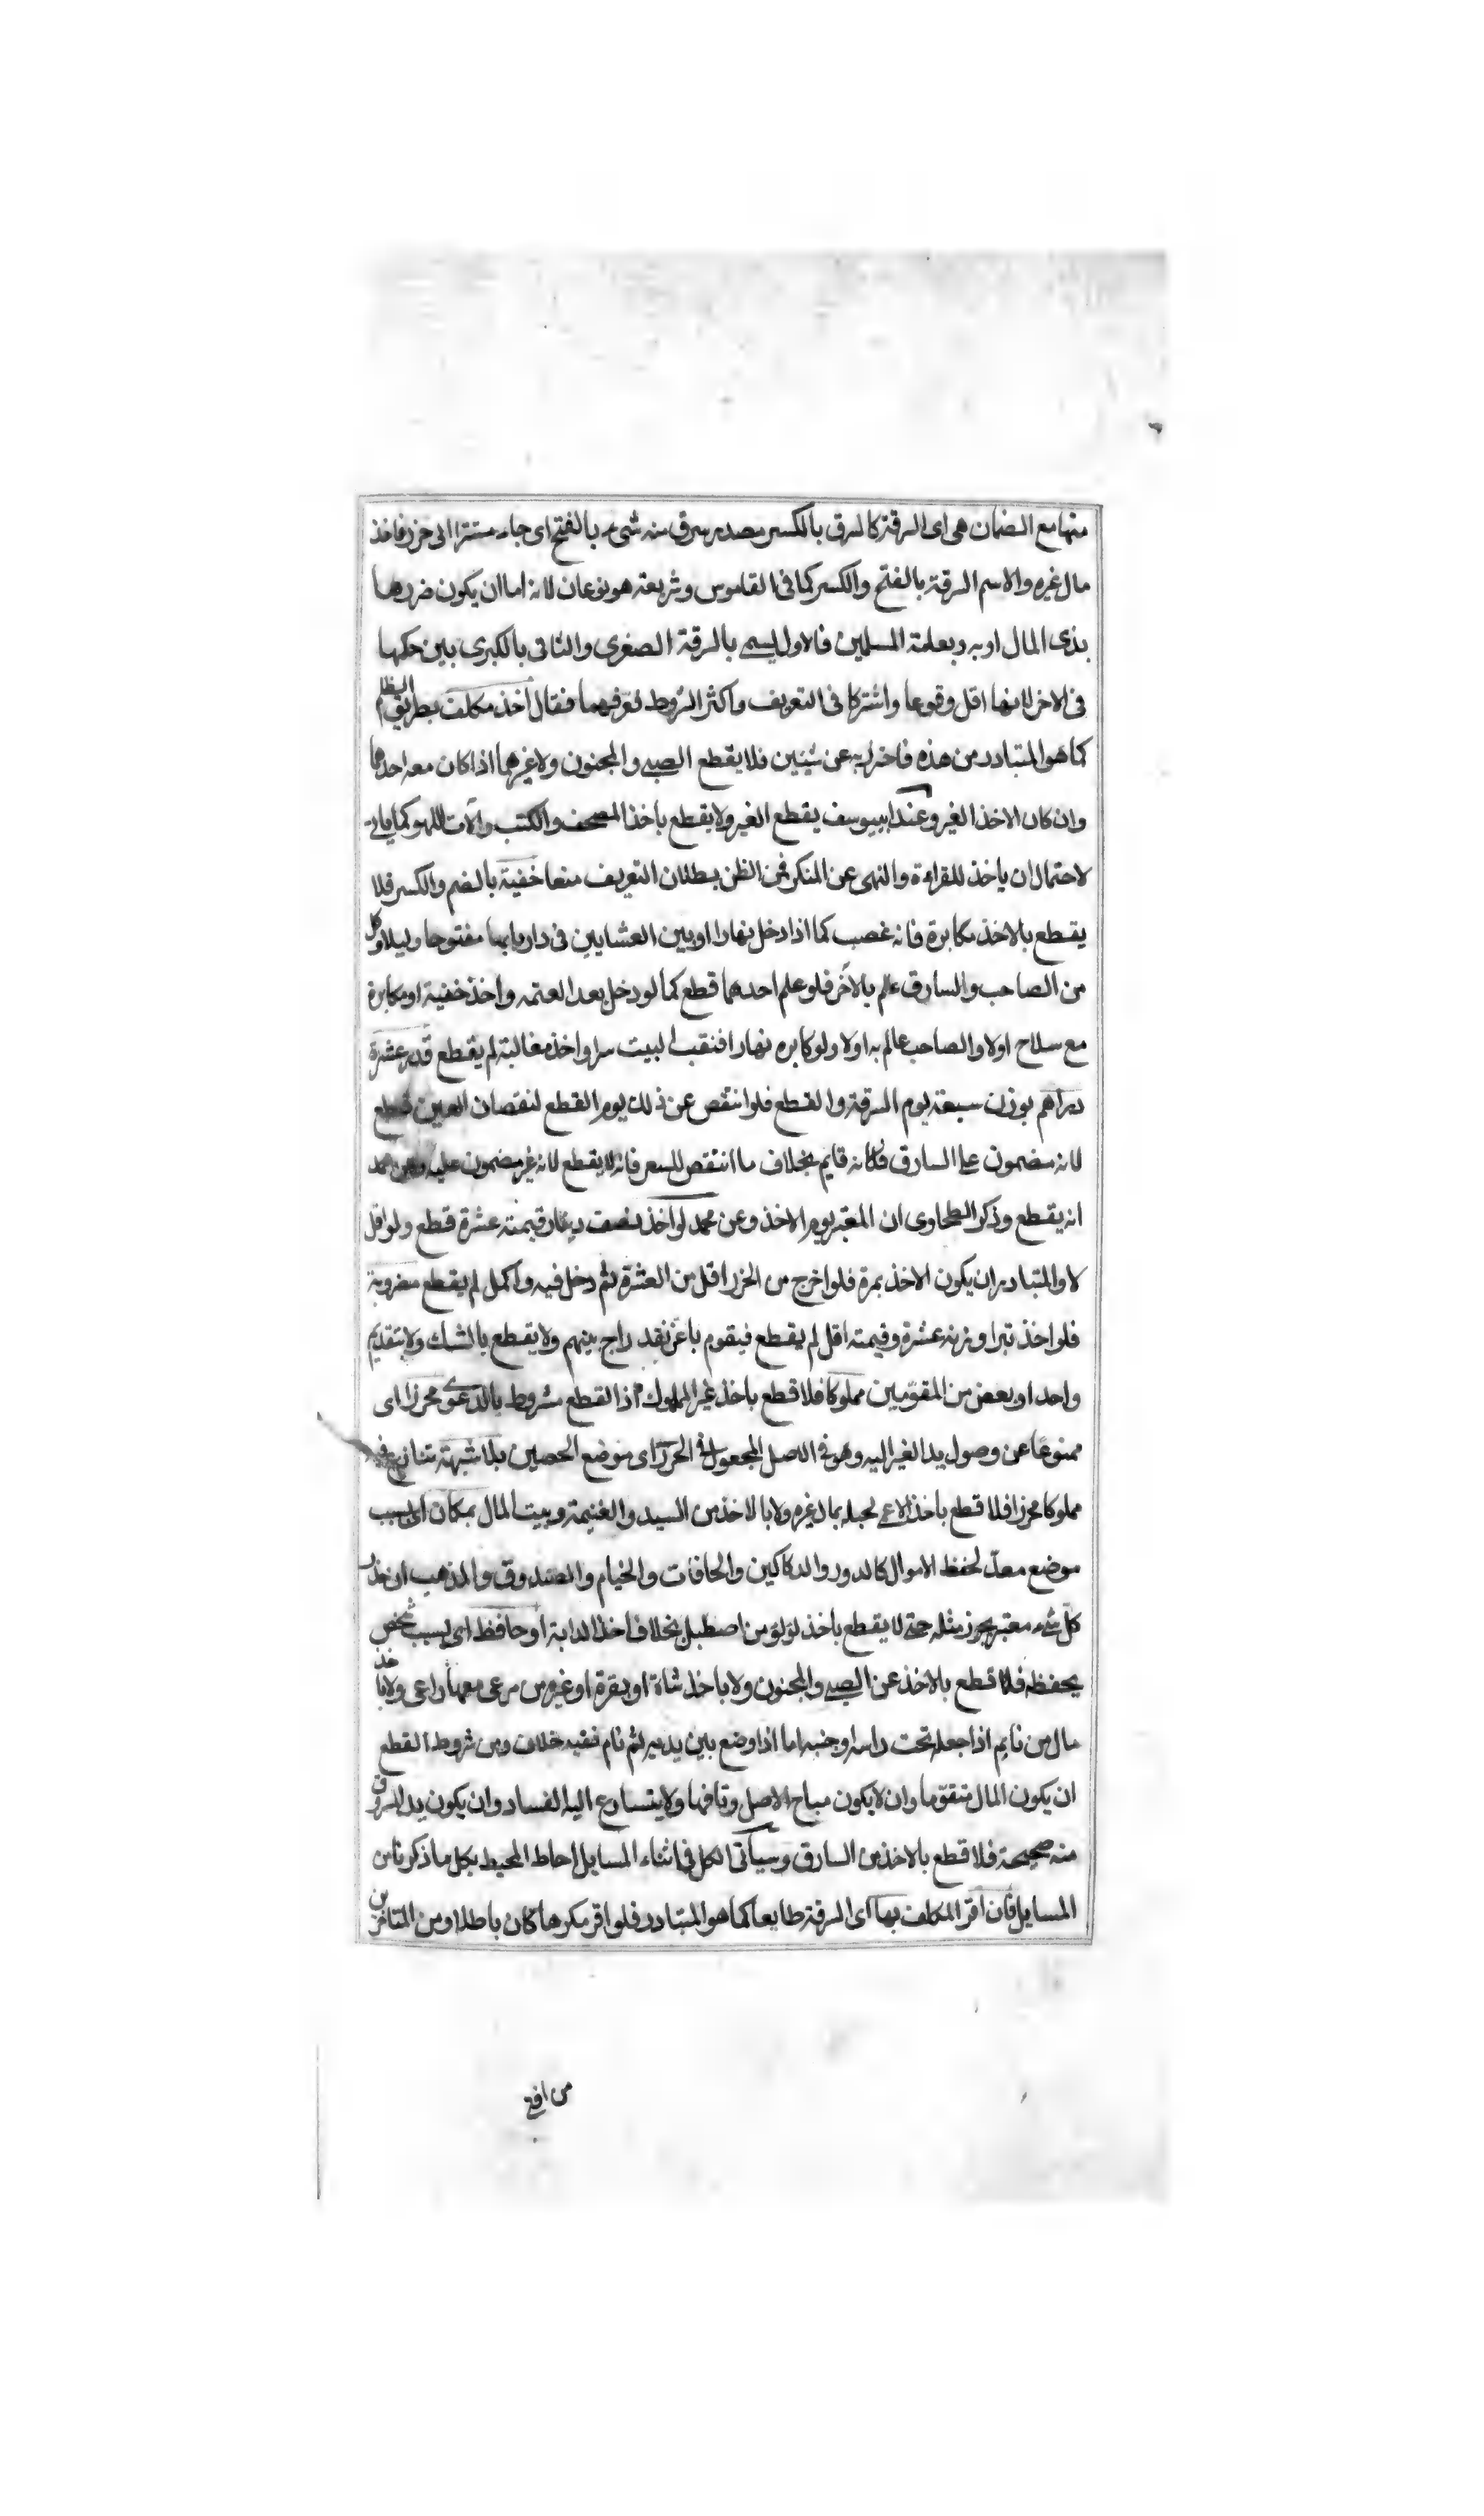 منها مع الضمان هى اى السرقة كالسرق بالكسر مصدر سرق منه شىء بالفتح اى جاء مستترا الى حرز فاخذ
مال غيره والاسم السرقة بالفتح والكسر كما فى القاموس وشريعة هو نوعان لانه اما ان يكون ضررها
بذى المال او به وبعامة المسلمين فالاول يسمى بالسرقة الصغرى والثانى بالكبرى بين حكمها
فى الاخر لانها اقل وقوعا واشتركا فى التعريف واكثر الشروط فعرفهما فقال اخذ مكلف بطريق الظلم
كما هو المتبادر من هذه فاحترز به عن شيئين فلا يقطع الصبى والمجنون ولا غيرهما اذا كان معه احدهما
وان كان الاخذ الغير وعند ابيبوسف يقطع الغير ولا يقطع باخذ المصحف والكتب وآلات اللهو كما ياتى
لاحتمال ان ياخذ للقراءة والنهى عن المنكر فمن الظن بطلان التعريف منعا خفية بالضم والكسر فلا
يقطع بالاخذ مكابرة فانه غصب كما اذا دخل نهارا او بين العشايين فى دار بابها مفتوحا وليلا وكل
من الصاحب والسارق عالم بالآخر فلو علم احدهما قطع كما لو دخل بعد العتمه واخذ خفية او مكابرة
مع سلاح اولا والصاحب عالم به اولا ولو كابره نهارا فنقب البيت سرا واخذ مغالبة لم يقطع قدر عشرة
دراهم بوزن سبعة يوم السرقة والقطع فلو انتقص عن ذلك يوم القطع لنقصان العين قطع
لانه مضمون على السارق فكانه قايم بخلاف ما انتقص للسعر فانه لا يقطع لانه غير مضمون عليه وعن محمد
انه يقطع وذكر الطحاوى ان المعتبر يوم الاخذ وعن محمد لو اخذ نصف دينار قيمته عشرة قطع ولو اقل
لا والمتبادر ان يكون الاخذ بمرة فلو اخرج من الحرز اقل من العشرة ثم دخل فيه واكمل لم يقطع مضروبة
فلو اخذ تبرا وزنه عشرة وقيمته اقل لم يقطع فيقوم باعز نقد راج بينهم ولا يقطع بالشك ولا بتقديم
واحد او بعض من المقومين مملوكا فلا قطع باخذ غير المملوك اذ القطع مشروط بالدعوى محرزا اى
ممنوعا عن وصول يد الغير اليه وهو فى الاصل المجعول فى الحرز اى موضع الحصين بلا شبهة تنازع فيه
مملوكا محرزا فلا قطع باخذ الاعمى لجهله بمال غيره ولا بالاخذ من السيد والغنيمة وبيت المال بمكان اى بسبب
موضع معد لحفظ الاموال كالدور والدكاكين والحانات والخيام والصندوق والمذهب ان حرز
كل شىء معتبر بحرز مثله حتى لا يقطع باخذ لؤلؤ من اصطبل بخلاف اخذ الدابة او حافظ اى بسبب شخص
يحفظه فلا قطع بالاخذ عن الصبى والمجنون ولا باخذ شاة او بقرة او غيره من مرعى معها راعى ولا باخذ
مال من نايم اذا جعله تحت راسه او جنبه اما اذا وضع بين يديه ثم نام ففيه خلاف ومن شروط القطع
ان يكون المال متقوما وان لا يكون مباح الاصل وتافها ولا يتسارع اليه الفساد وان يكون يد المسروق
منه صحيحة فلا قطع بالاخذ من السارق وسيأتى الكل فى اثناء المسايل احاط المحيط بكل ما ذكرنا من
المسايل فان اقر المكلف بها اى السرقة طايعا كما هو المتبادر فلو اقر مكرها كان باطلا ومن المتاخرين
من افتى